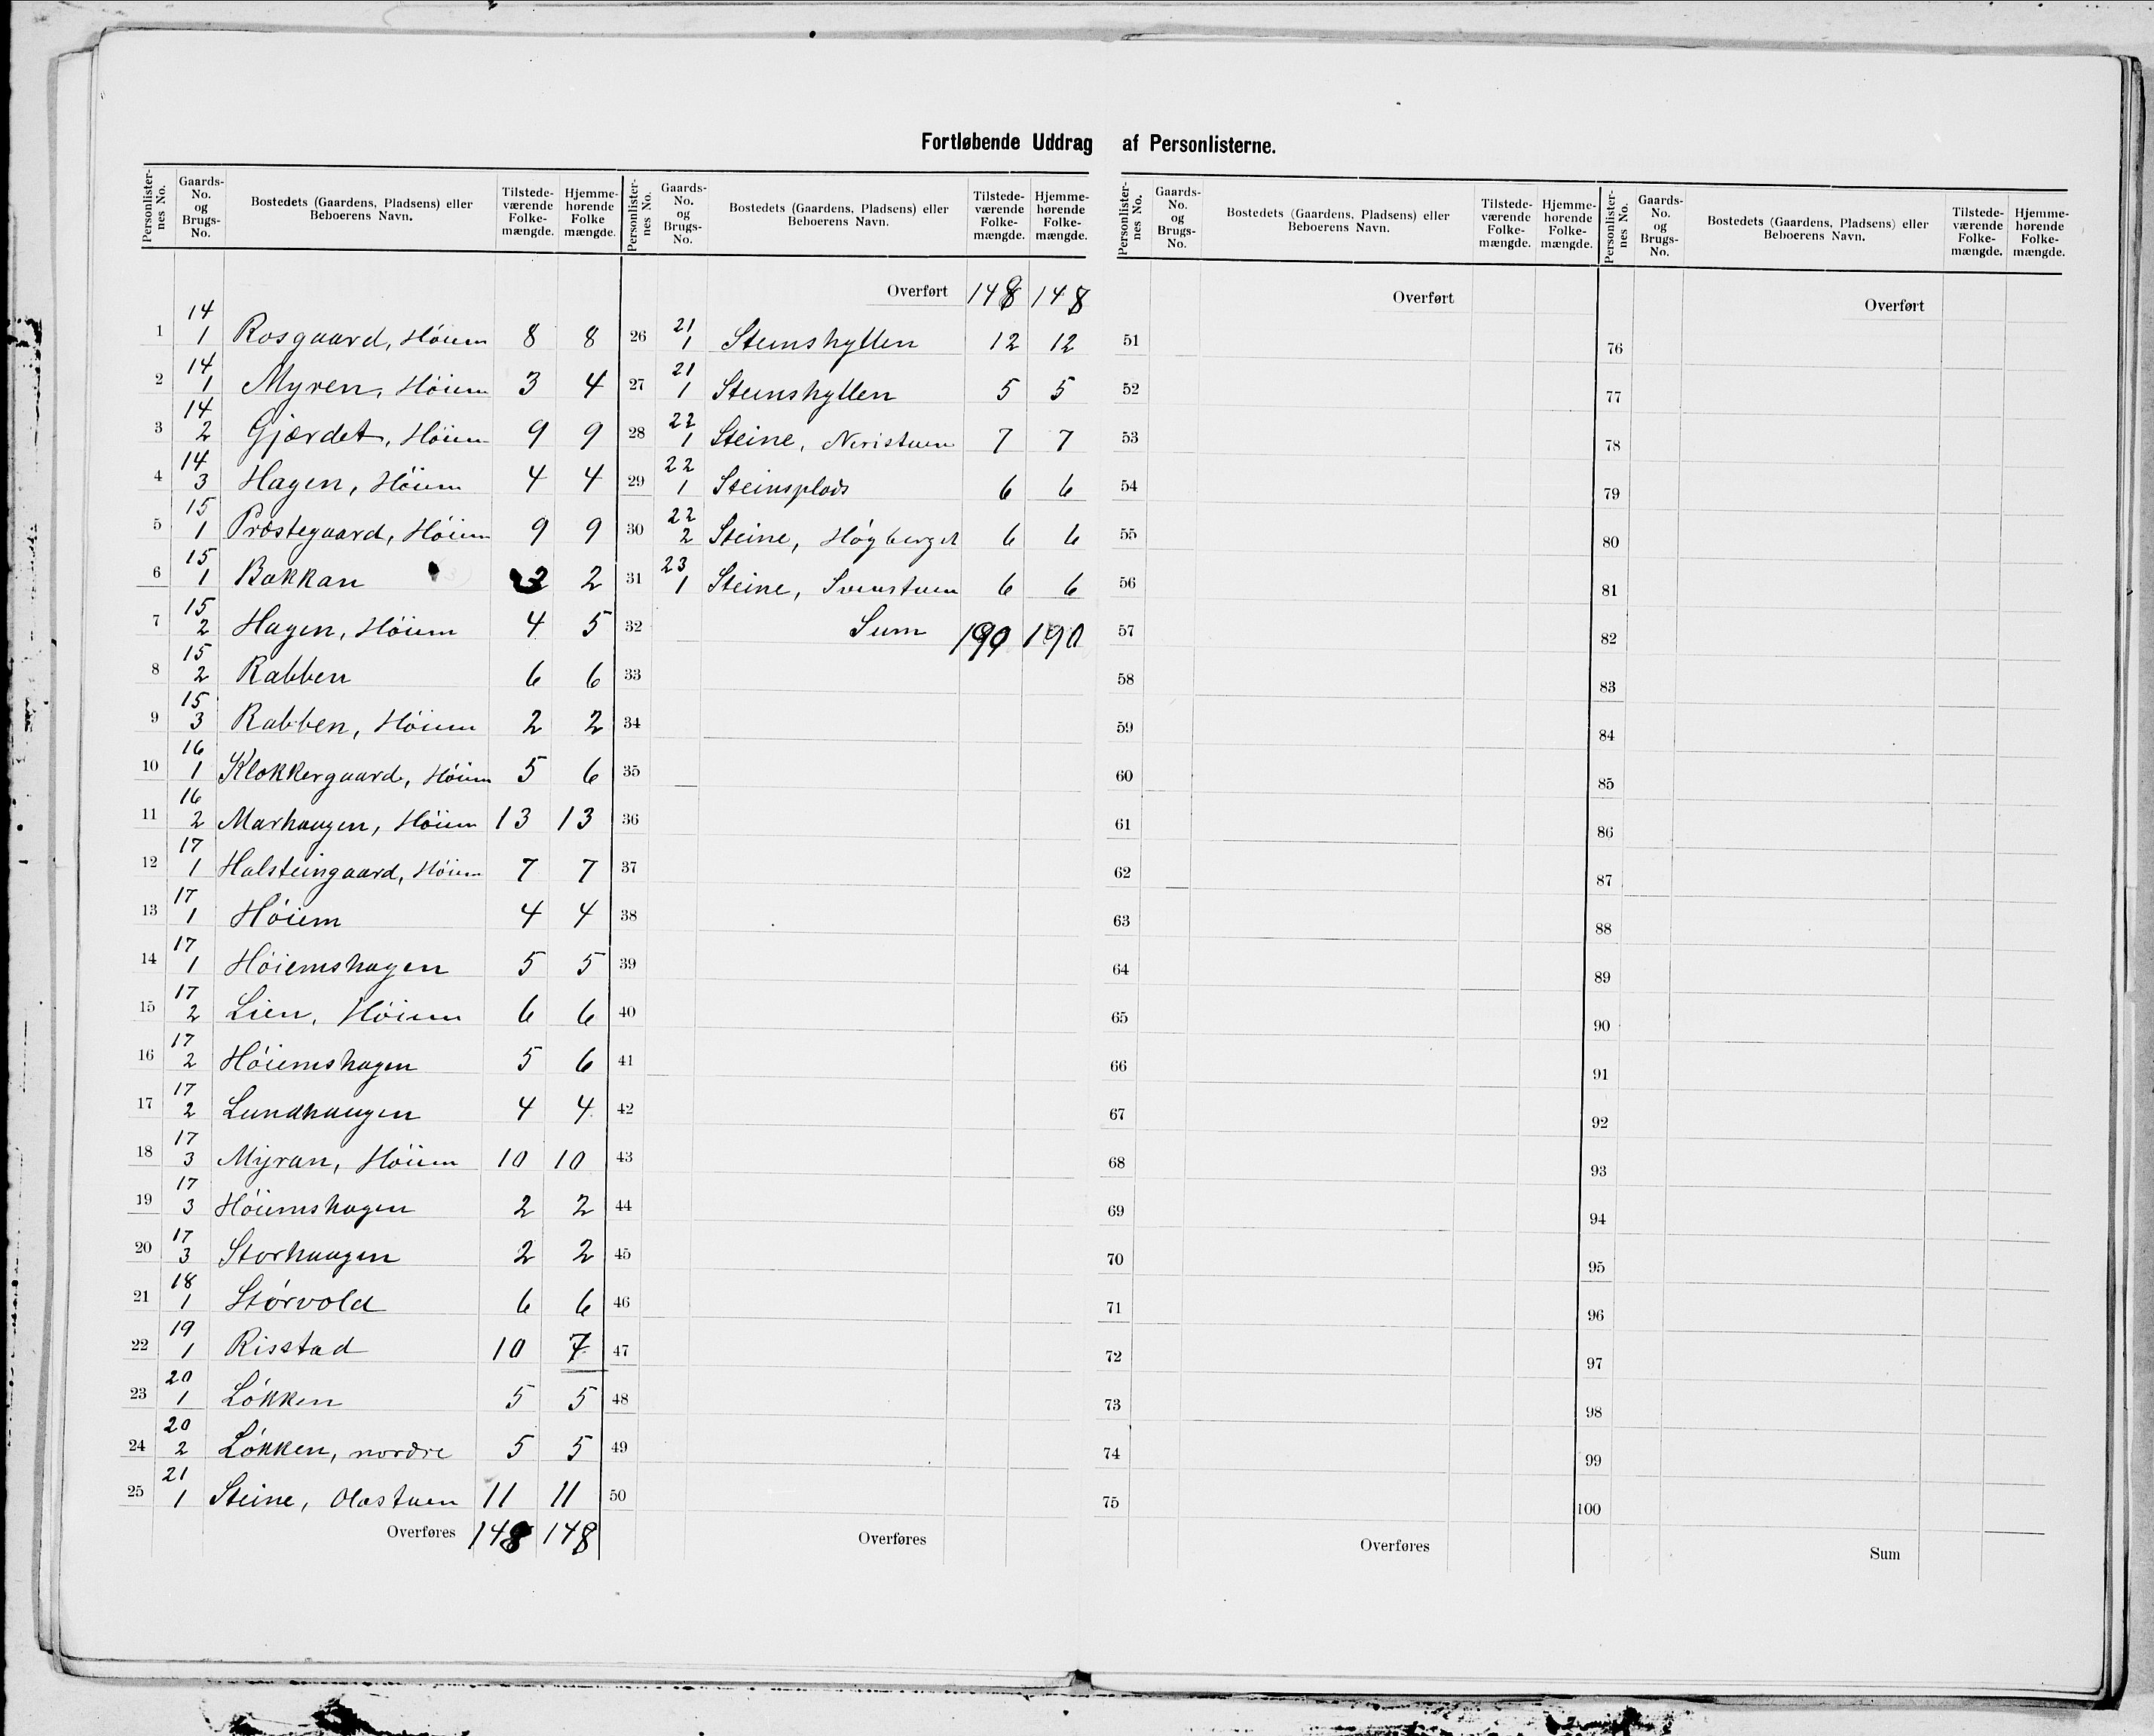 Fortløbende Uddrag af Personlisterne.
Personlister-nes No. Gaards-No. og Brugs-No. Bostedets (Gaardens, Pladsens) eller Beboerens Navn. Tilstede-værende Folke-mængde. Hjemme-hørende Folke mængde.
1 14 1 Rosgaard, Höiem 8 8
2 14 1 Myren, Höiem 3 4
3 14 2 Gjærdet, Höiem 9 9
4 14 3 Hagen, Höiem 4 4
5 15 1 Præstegaard, Höiem 9 9
6 15 1 Bakkan 2 2
7 15 2 Hagen, Höiem 4 5
8 15 2 Rabben 6 6
9 15 3 Rabben, Höiem 2 2
10 16 1 Klokkergaard, Höiem 5 6
11 16 2 Marhaugen, Höiem 13 13
12 17 1 Halsteingaard, Höiem 7 7
13 17 1 Höiem 4 4
14 17 1 Höiemshagen 5 5
15 17 2 Lien, Höiem 6 6
16 17 2 Höiemshagen 5 6
17 17 2 Lundhaugen 4 4
18 17 3 Myran, Höiem 10 10
19 17 3 Höiemshagen 2 2
20 17 3 Storhaugen 2 2
21 18 1 Störvold 6 6
22 19 1 Risstad 10 7
23 20 1 Lökken 5 5
24 20 2 Lökken, nordre 5 5
25 21 1 Steine, Olastuen 11 11
Overføres 148 148
Personlister-nes No. Gaards-No. og Brugs-No. Bostedets (Gaardens, Pladsens) eller Beboerens Navn. Tilstede-værende Folke-mængde. Hjemme-hørende Folke-mængde.
Overført 148 148
26 21 1 Steinshyllen 12 12
27 21 1 Steinshyllen 5 5
28 22 1 Steine, Neristuen 7 7
29 22 1 Steinsplads 6 6
30 22 2 Steine, Högberget 6 6
31 23 1 Steine, Svenstuen 6 6
32 Sum 190 190
33
34
35
36
37
38
39
40
41
42
43
44
45
46
47
48
49
50
Overføres
Personlister-nes No. Gaards-No. og Brugs-No. Bostedets (Gaardens, Pladsens) eller Beboerens Navn. Tilstede-værende Folke-mængde. Hjemme-hørende Folke-mængde.
Overført
51
52
53
54
55
56
57
58
59
60
61
62
63
64
65
66
67
68
69
70
71
72
73
74
75
Overføres
Personlister-nes No. Gaards-No. og Brugs-No. Bostedets (Gaardens, Pladsens) eller Beboerens Navn. Tilstede-værende Folke-mængde. Hjemme-hørende Folke-mængde.
Overført
76
77
78
79
80
81
82
83
84
85
86
87
88
89
90
91
92
93
94
95
96
97
98
99
100
Sum